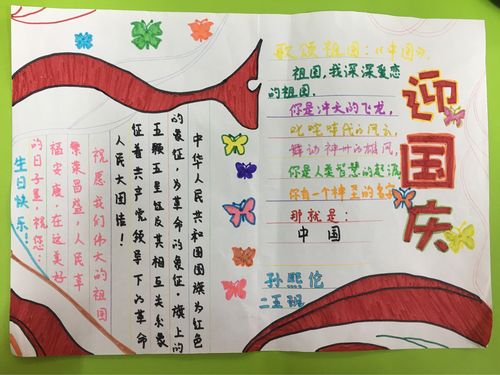 迎国庆
歌颂祖国:《中国》
祖国,我深深爱恋
的祖国.
你是冲天的飞龙,
叱咤时代的风云,
舞动神州的雄风,
你是人类智慧的起源,
你有一个神圣的名字,
那就是:
中国
孙熙伦
二五班
中华人民共和国国旗为红色
的象征,为革命的象征。旗上的
五颗五星及其相互关系象
征着共产党领导下的革命
人民大团结!
祝愿我们伟大的祖国
繁荣昌盛,人民幸
福安康,在这美好
的日子里,祝您:
生日快乐!